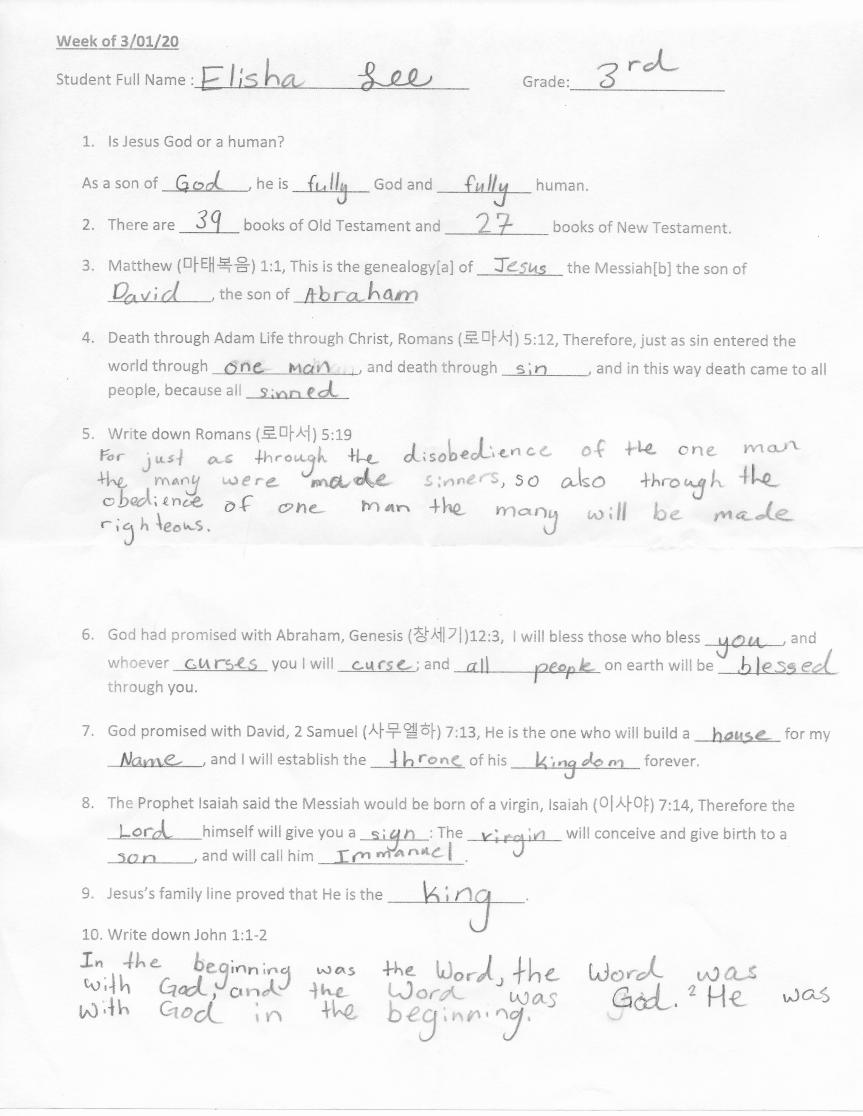 Week of 3/01/20
Student Full Name : Elisha Lee Grade: 3rd
1. Is Jesus God or a human?
As a son of God, he is fully God and fully human.
2. There are 39 books of Old Testament and 27 books of New Testament.
3. Matthew (마태복음) 1:1, This is the genealogy[a] of Jesus the Messiah[b] the son of
David, the son of Abraham
4. Death through Adam Life through Christ, Romans (로마서) 5:12, Therefore, just as sin entered the
world through one man, and death through sin, and in this way death came to all
people, because all sinned
5. Write down Romans (로마서) 5:19
For just as through the disobedience of the one man
the many were made sinners, so also through the
obedience of one man the many will be made
righteous.
6. God had promised with Abraham, Genesis (창세기)12:3, I will bless those who bless you, and
whoever curses you I will curse; and all people on earth will be blessed
through you.
7. God promised with David, 2 Samuel (사무엘하) 7:13, He is the one who will build a house for my
Name, and I will establish the throne of his kingdom forever.
8. The Prophet Isaiah said the Messiah would be born of a virgin, Isaiah (이사야) 7:14, Therefore the
Lord himself will give you a sign: The virgin will conceive and give birth to a
son, and will call him Immanuel.
9. Jesus's family line proved that He is the king.
10. Write down John 1:1-2
In the beginning was the Word, the Word was
with God, and the Word was God. 2 He was
with God in the beginning.